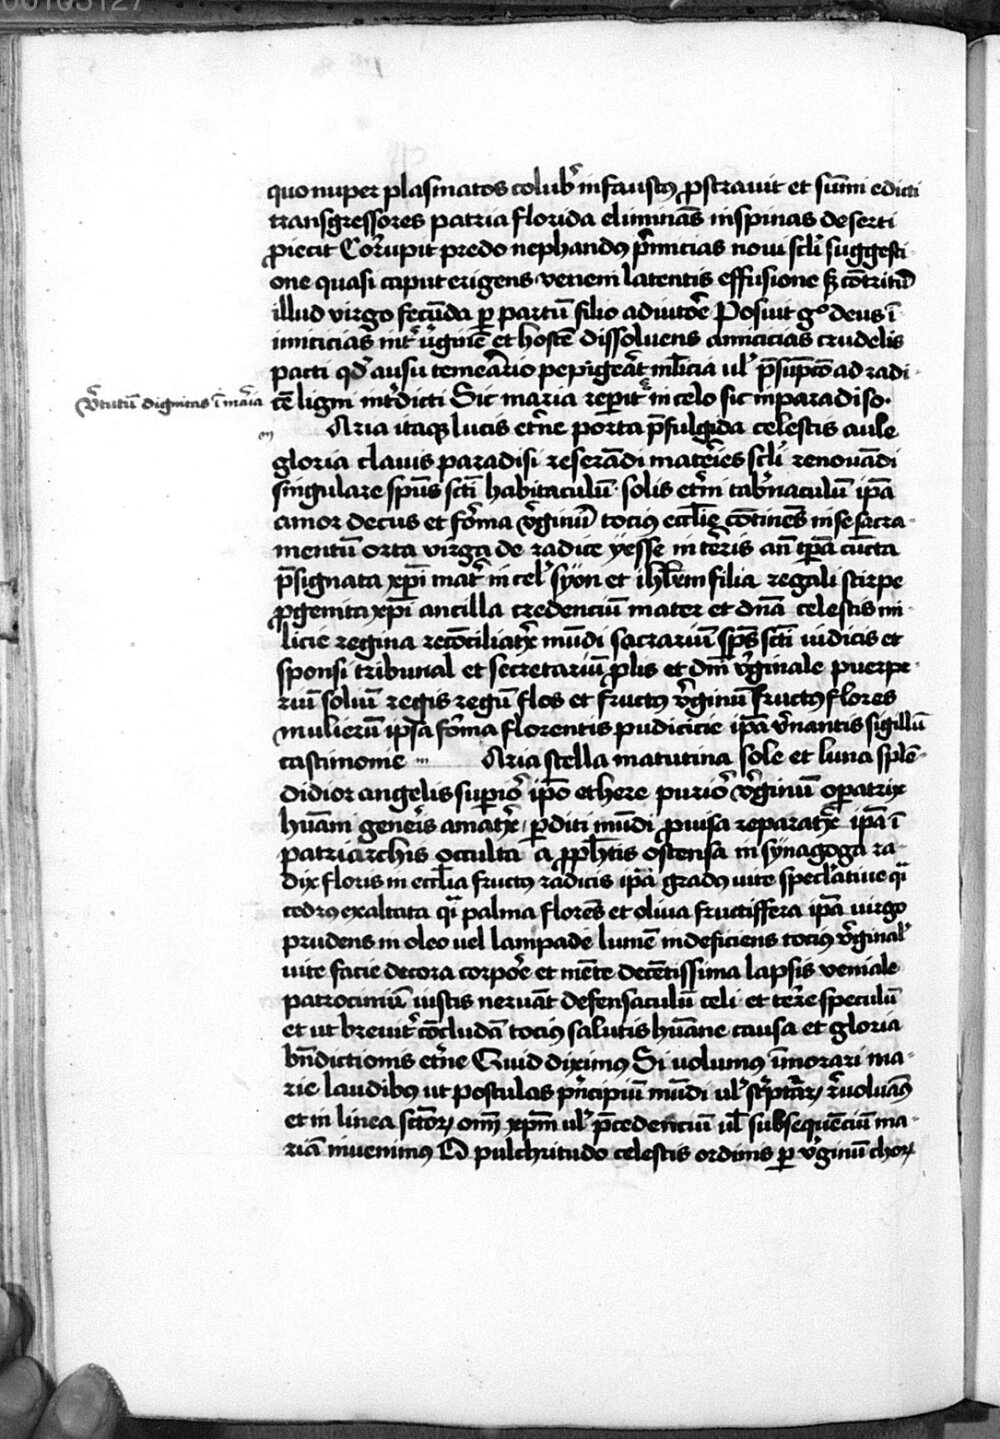 quo nuper plasmatos colubr̄ infaustꝰ ꝓstrauit et sūmi edicti
transgressores patria florida elimināns in spinas deserti
ꝓiecit Corrupit predo nephandꝰ p̄micias noui scl̄i suggesti
one quasi caput erigens veneni latentis effusione sꝫ cōtritū
illud virgo fecūda ꝑ partū filio adiutōe Posuit gº deus ī
inimicicias int̄ v̄ginē et hostē dissoluens amicicias crudelis
pacti qd̓ ausu temerario pepigerāt ml̄icia ul̓ p̄sūpcō ad radi
cē ligni int̄dicti Sic maria reperit̄ in celo sic in paradiso
v̄tutū dignitas ī maria
m
Aria itaqꝫ lucis et̄ne porta p̄fulgida celestis aule
gloria clauis paradisi reserādi materies scl̄i renouādi
singulare sp̄us sc̄ti habitaculū solis et̄ni tab̄naculū ip̄a
amor decus et forma v̄ginū tocius eccl̄ie cōtinēs in se sacra
mentū orta virga de radice yesse in terris an̄ tp̄a cūcta
p̄signata xp̄i mat̄ in cel̓ syon et ihrl̄em filia regali stirpe
ꝓgenita xp̄i ancilla credenciū mater et dn̄a celestis mi
licie regina recōciliat̄x mūdi sacrariū sp̄s sc̄ti iudicis et
sponsi tribunal et secretariū ꝓlis et dn̄i v̄ginale puerpe
riū soliū regis regū flos et fructꝰ v̄ginū fructꝰ flores
mulierū ipsa forma florentis pudicicie ip̄a v̄nantis sigillū
castimonie m Aria stella matutina sole et luna splē
didior angelis superior̄ ip̄o ethere purior̄ v̄ginū opatrix
hūani generis amat̄x ꝑditi mūdi ꝓuisa reparat̄x ip̄a ī
patriarchis occulta a ꝓph̄tis ostensa in synagoga ra
dix floris in eccl̄ia fructus radicis ip̄a gradꝰ vite specl̄atiue q̄
cedrꝰ exaltata q̄ palma florēs et oliua fructiffera ip̄a virgo
prudens in oleo uel lampade lumē indeficiens tociꝰ v̄ginal̓
uite facie decora corpoē et mēte decētissima lapsis veniale
patrociniū iustis neruāt defensaculū celi et terre speculū
et ut breuit̄ cōcludā tociꝰ salutis hūane causa et gloria
bn̄dictionis et̄ne Quid diximꝰ Si uolumꝰ īmorari ma
rie laudibꝰ ut postulas p̄ncipiū mūdi ul̓ sc̄pturaꝝ reuoluāꝰ
et in linea sc̄toꝝ om̄ xp̄m ul̓ p̄cedenciū ul̓ subsequēciū ma
riā inuenimꝰ O pulchritudo celestis ordinis ꝑ v̄ginū choꝝ